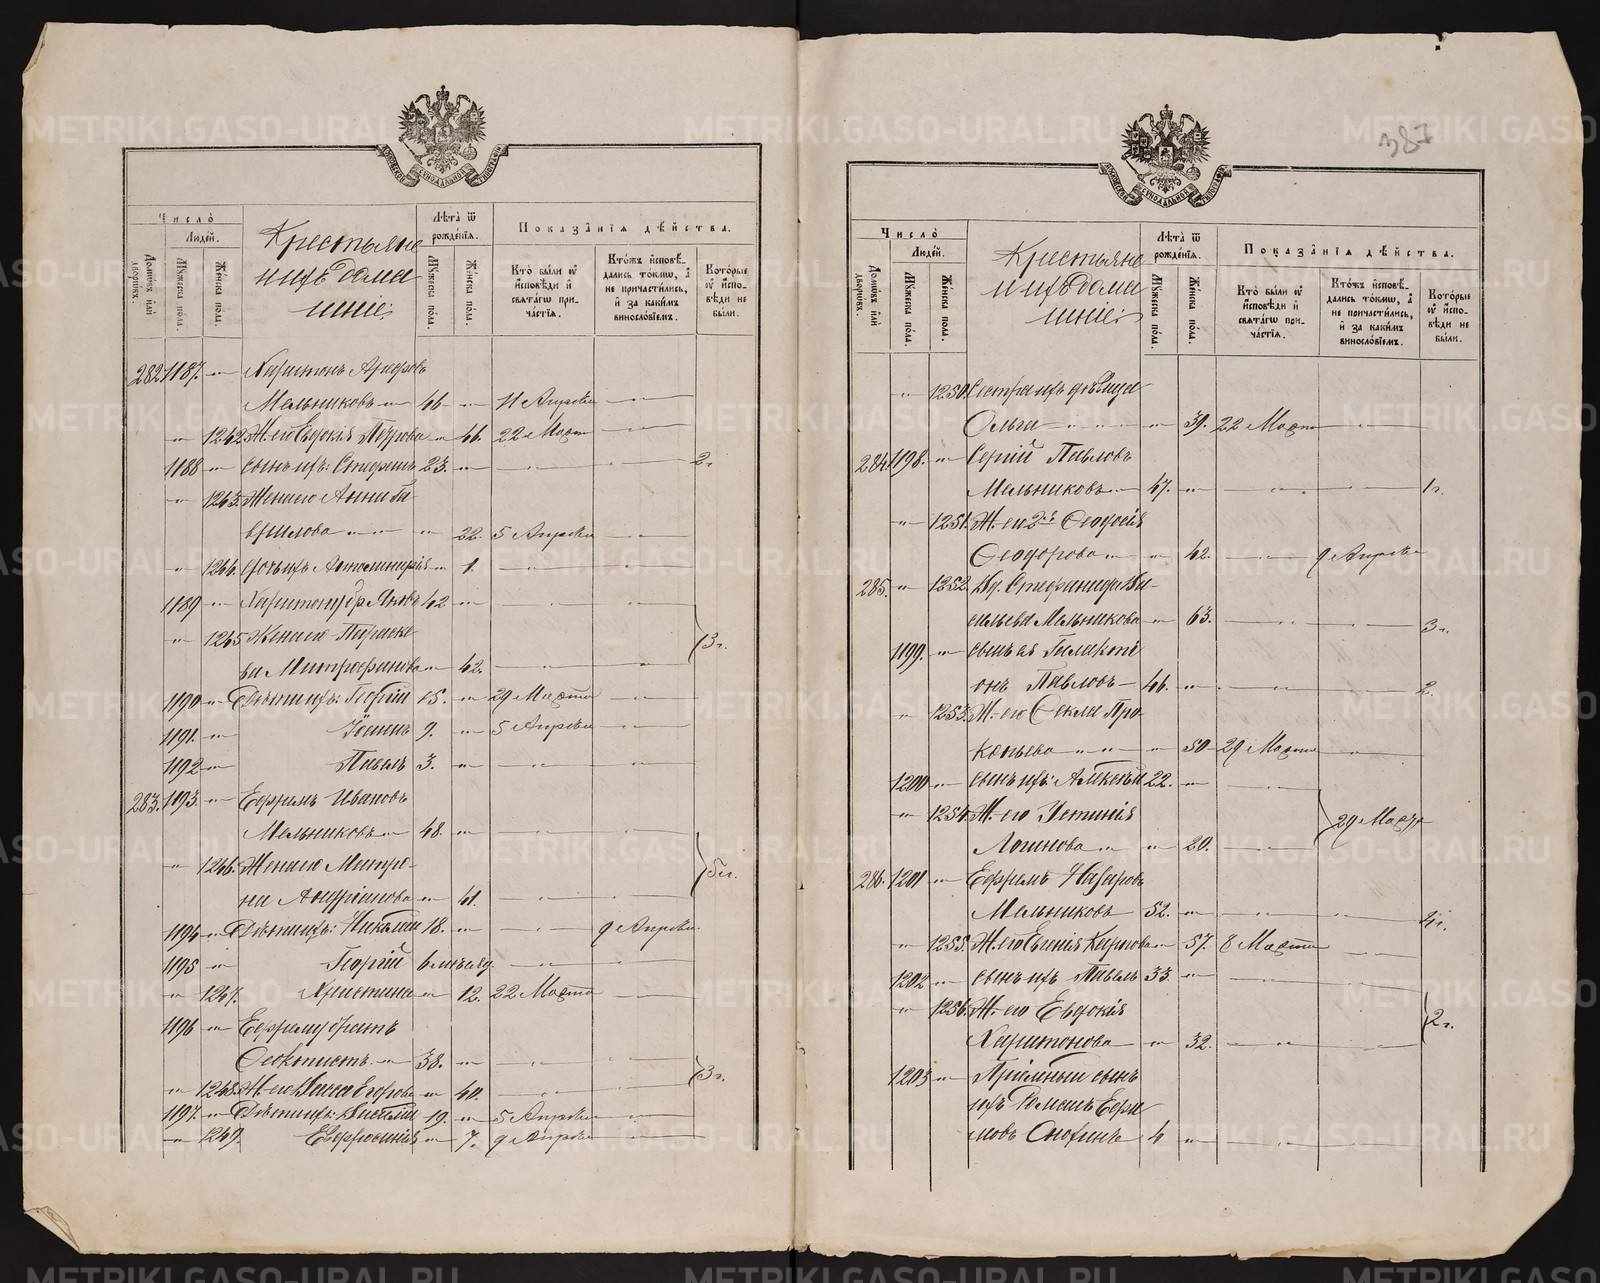 Число
Людей.
Домовъ или дворовъ.
Мужеска пола.
Женска пола.
Крестьяне
и ихъ дома
шніе:
Лѣта ѿ рожденія.
Мужеска пола.
Женска пола.
Показанія дѣйства.
Кто были у исповѣди и святагω причастія.
Ктожъ исповѣдались токмω, а не причастились, и за какимъ винословіемъ.
Которые у исповѣди не были.
282 1187. „ Харитонъ
Мельниковъ „ 46 „ 11 Апрѣля
„ 1242 Ж. его Евдокія Петрова „ 46. 22 Март
1188 „ сынъ ихъ: Стефанъ 23. „ „ 2 г
„ 1243. Жена его Анна Га
врилова „ 22. 5 Апрѣля
„ 1244. дочь ихъ Аполинарія „ 1.
1189 „ Харитону бр. Яковъ 42 „
„ 1245 Жена его Параске
ва Митрофанова „ 42. 3 г.
1190 „ Дѣти ихъ: Георгій 15. „ 29 Марта
1191. „ Іоаннъ 9. „ 5 Апрѣля
1192 „ Павелъ 3. „
283. 1193. „ Ефримъ Ивановъ
Мельниковъ „ 48. „
„ 1246. Жена его Матро
на Андріанова „ 41. 5 г.
1194 „ Дѣти ихъ: Николай 18. „ 9 Апрѣля
1195 „ Георгій 6 мѣсяц.
„ 1247. Христина „ 12. 22 Марта
1196 „ Ефриму братъ
Феоктистъ „ 38. „
„ 1248. Ж. его Васса Егорова „ 40. 3 г.
1197. „ Дѣти ихъ: Василій 19. „ 5 Апрѣля
„ 1249. Евфросинія „ 7. 9 Апрѣля
387
Число
Людей.
Домовъ или дворовъ.
Мужеска пола.
Женска пола.
Крестьяне
и ихъ дома
шніе:
Лѣта ѿ рожденія.
Мужеска пола.
Женска пола.
Показанія дѣйства.
Кто были у исповѣди и святагω причастія.
Ктожъ исповѣдались токмω, а не причастились, и за какимъ винословіемъ.
Которые у исповѣди не были.
„ 1250. Сестра ихъ дѣвица
Ольга „ 39. 22 Марта
284. 1198. „ Сергій Павловъ
Мельниковъ 47. „ 1 г.
„ 1251. Ж. его 2я Феодосія
Феодорова „ 42. 9 Апрѣля
285. „ 1252. Вд. Стефанида Ва
сильева Мельникова „ 63. 3 г.
1199. „ сынъ ея Галакті
онъ Павловъ 46. „ 2.
„ 1253. Ж. его Фекла Про
копьева „ 50 29 Марта
1200 „ сынъ ихъ: Алексѣй 22. „
„ 1254. Ж. его Устинія 29 Марта
Логинова „ 20.
286. 1201 „ Ефримъ Назаровъ
Мельниковъ 52. „ 4 г.
„ 1255. Ж. его Евгенія Карпова „ 57. 8 Марта
1202 „ сынъ ихъ Павелъ 33. „
„ 1256. Ж. его Евдокія 2 г.
Харитонова „ 32.
1203 „ Пріемный сынъ
ихъ Романъ Ефри
мовъ 4 „